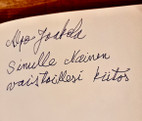 Arja Joskela
Sinulle Nainen
vaistoillesi kiitos